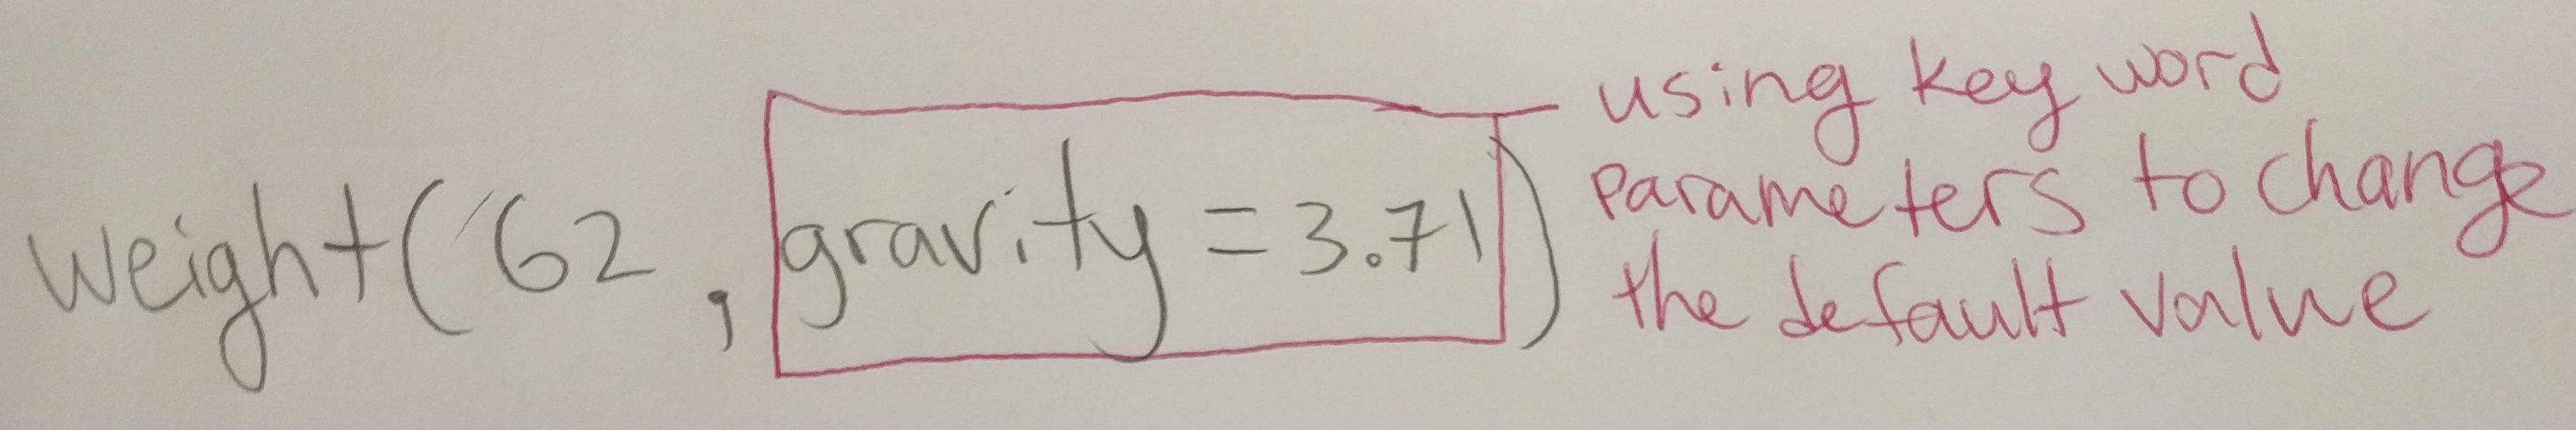 weight(62, gravity = 3.71)
using key word
parameters to change
the default value